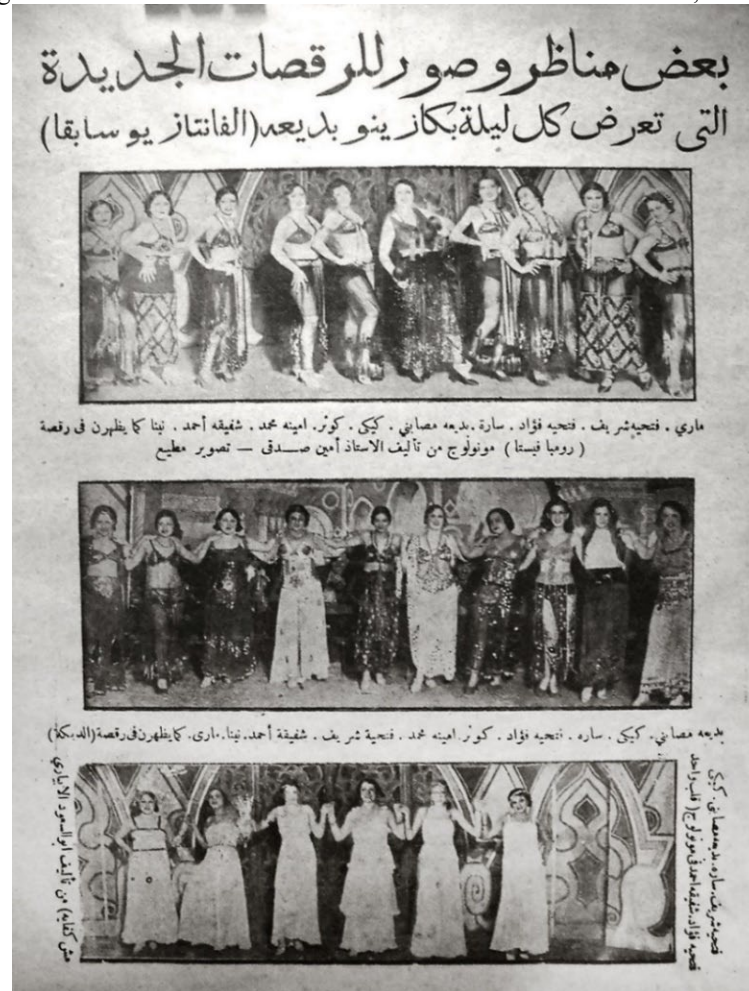 بعض مناظر وصور للرقصات الجديدة
التى تعرض كل ليلة بكازينو بديعه (الفانتازيو سابقا)
ماري . فتحيه شريف . فتحيه فؤاد . سارة . بديعه مصابني . كيكى . كوثر . امينه محمد . شفيقه أحمد . نينا كما يظهرن فى رقصة
( رومبا فيستا ) مونولوج من تأليف الاستاذ أمين صدقى — تصوير مطيع
بديعه مصابني . كيكى . ساره . فتحيه فؤاد . كوثر . امينه محمد . فتحية شريف . شفيقة أحمد . نينا . مارى . كما يظهرن فى رقصة (الدبكة)
فتحيه شريف . ساره . بديعه مصابنى . كيكى
فتحيه فؤاد . شفيقه احمد فى مونولوج ( قلب واحد
مش كفايه ) من تأليف ابو السعود الابيارى